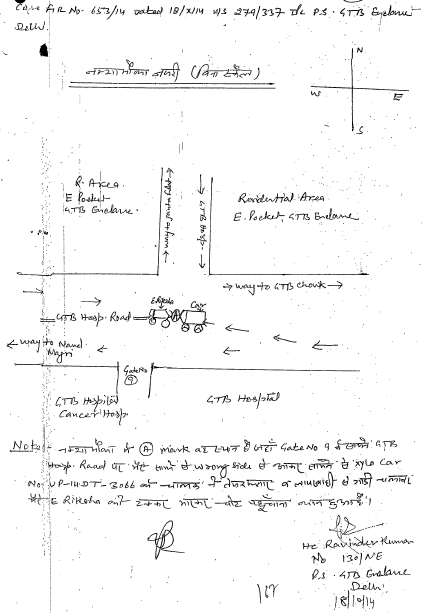 Case FIR No. 653/14 dated 18/X/14 u/s 279/337 IPC P.S. GTB Enclave
Delhi.
नक्शा मौका नजरी (बिना स्केल)
N
W
E
S
R. Area
E Pocket
GTB Enclave
way to Janta flat
GTB Hosp.
Residential Area
E. Pocket, GTB Enclave
→ way to GTB Chowk →
E Riksha
Car
A
GTB Hosp. Road
← way to Nand
Nagri
Gate No
9
GTB Hospital
Cancer Hosp
GTB Hospital
Note:- नक्शा मौका में (A) mark वह स्थान है जहाँ Gate No 9 के सामने GTB
Hosp. Road पर wrong side से आकर सामने से Xylo Car
No. UP-14DT-3066 के चालक ने तेजरफ्तार व लापरवाही से गाड़ी चलाकर
E Riksha को टक्कर मारकर चोट पहुँचाना हुआ है।
HC Ravinder Kumar
No 130/NE
P.S. GTB Enclave
Delhi
18/10/14